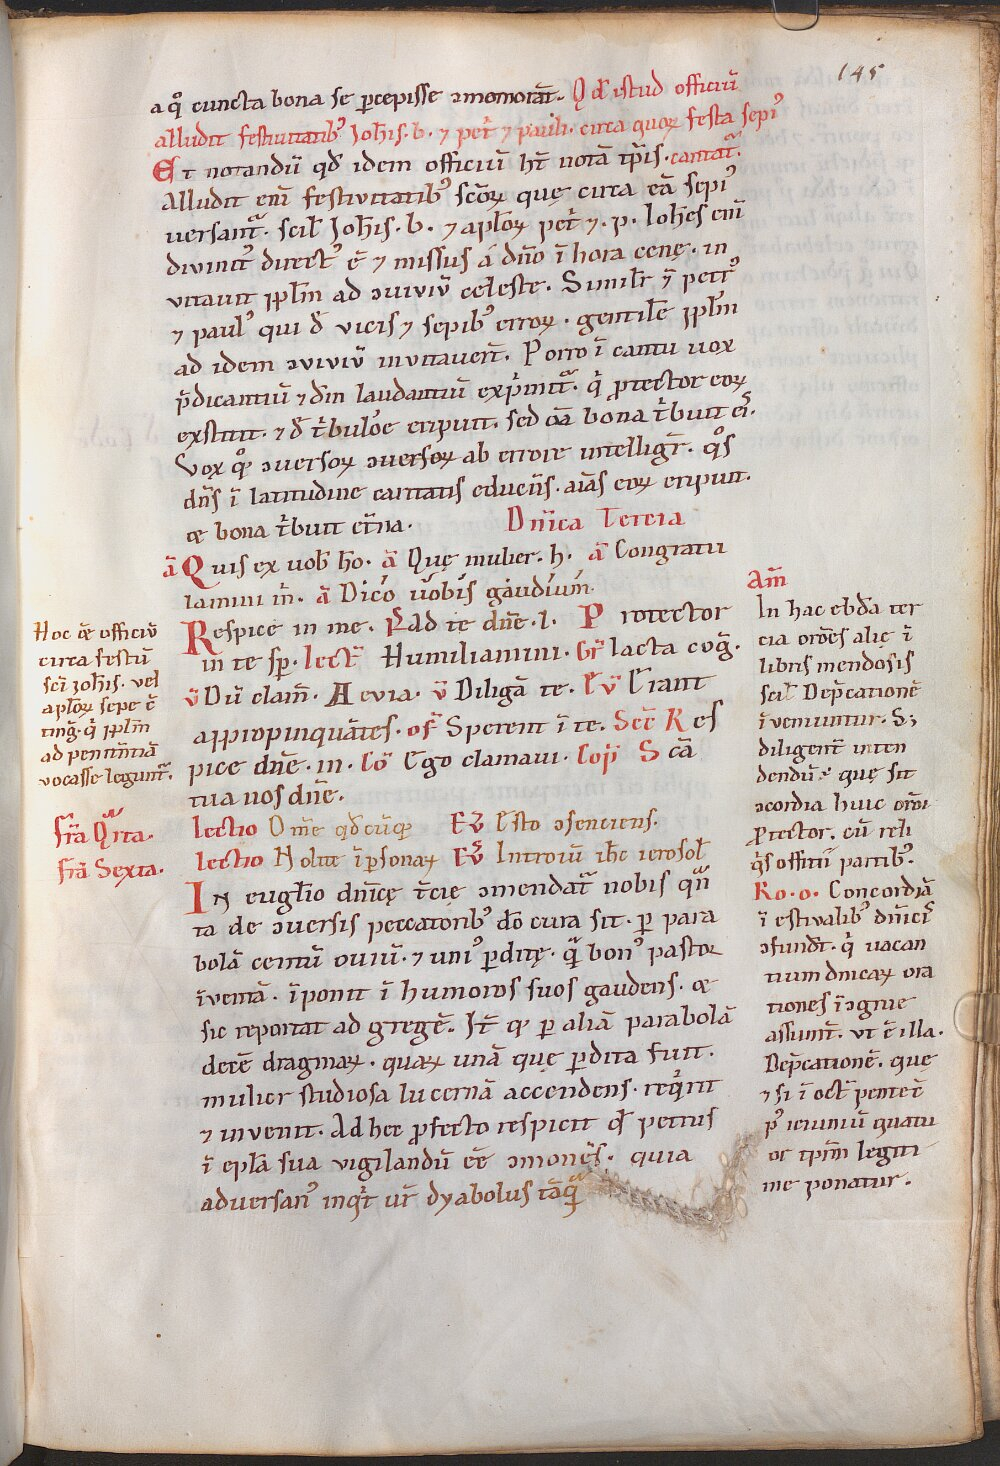 145
a q° cuncta bona se p̄cepisse ɔmemorāt. Qd̄ istud officiū
alludit festiuitatib⁹ Ioh̄is. b. ⁊ pet̄ ⁊ pauli. circa quoꝝ festa sepi⁹
Et notandū qd̄ idem officiū ht̄ notā tp̄is. cantat᷑.
alludit eni̅ festiuitatib⁹ sc̄oꝝ quę circa eā sepi⁹
uersant᷑. scil̄ Ioh̄is. b. ⁊ apl̄oꝝ pet̄ ⁊. p. Ioh̄es eni̅
diuinit⁹ direct⁹ ē ⁊ missus a dn̄o ī hora cenę. in
uitauit ppl̄m ad ɔuiuiū celeste. Similit̄ ⁊ petr⁹
⁊ paul⁹ qui d̄ uicis ⁊ sepib⁹ erroꝝ. gentilē ppl̄m
ad idem ɔuiuiū inuitauer̄. Porro ī cantu uox
p̄dicantiū ⁊ dm̄ laudantiū exp̄mit᷑. q̄ ꝓtector eoꝝ
exstitit. ⁊ d̄ t̄bul'oe eripuit. sed oā bona t̄buit ei̅.
Vox qꝫ ɔuersoꝝ ɔuersoꝝ ab errore intelligit᷑. q°s
dn̄s ī latitudine caritatis educēs. aīas eoꝝ eripuit.
æ bona t̄buit et̄na. Dn̄ica Terc̄ia
ā Quis ex uob̄ ho. ā Quę mulier. h. ā Congratu
lamini m̄. ā Dico uobis gaudium.
Respice in me. P̄s Ad te dn̄e. l. P rotector
in te sp̄. lect̄ Humiliamini. Gr̄ Iacta cog̅.
v̄ Dū clam̄. Aeuia. v̄ Diligā te. Ev̄ Erant
appropinquātes. of̄ Sperent ī te. Sec̄ Res
pice dn̄e. m. Co̅ Ego clamaui. Cop̄ Scā
tua nos dn̄e.
lectio Om̄e qd̄cūqꝫ Ev̄ Esto ɔsenciens.
lectio Nolite ī psonaꝝ Ev̄ Introiit ih̄c ierosol̄
In eugl̄io dn̄icę t̄cię ɔmendat᷑ nobis qn̄
ta de ɔuersis peccatorib⁹ d̄o cura sit. p̄ para
bolā centū ouiū. ⁊ uni⁹ p̄ditę. q̄ bon⁹ pastor
īuentā. īponit ī humoros suos gaudens. æ
sic reportat ad gregē. It̄ qꝫ p̄ aliā parabolā
decē dragmaꝝ. quaꝝ unā quę p̄dita fuit.
mulier studiosa lucernā accendens. req̄rit
⁊ inuenit. Ad hec ꝓfecto respicit qd̄ petrus
ī epl̄a sua uigilandū eē ɔmonēs. quia
aduersari⁹ inqt̄ ur̄ dyabolus tāq̄
Hoc æ officiū
circa festū
sc̄i Ioh̄is. vel
apl̄oꝝ sepe ē
ting̅. q̄ ppl̄m
ad penitn̄tiā
vocasse legunt᷑.
fr̄ia Qr̄ta.
fr̄ia Sexta.
Am̄
In hac ebd̄a ter
cia oro̅es alię ī
libris mendosis
scil̄ Dep̄cationē
īveniuntur. S;
diligent̄ inten
dendū ē quę sit
ɔcordia huic oro̅i
ꝓtector. cū reli
q̄s officii partib⁹.
Ro. o. Concordiā
ī estiualib⁹ dn̄icis
ɔfundit. q̄ uacan
tium dn̄icaꝝ ora
tiones īɔgrue
assumt̄. vt ē illa.
Dep̄cationē. que
⁊ si ī oct̄ pentec̄
p⁹ ieiuniū quatu
or tp̄m legiti
me ponatur.